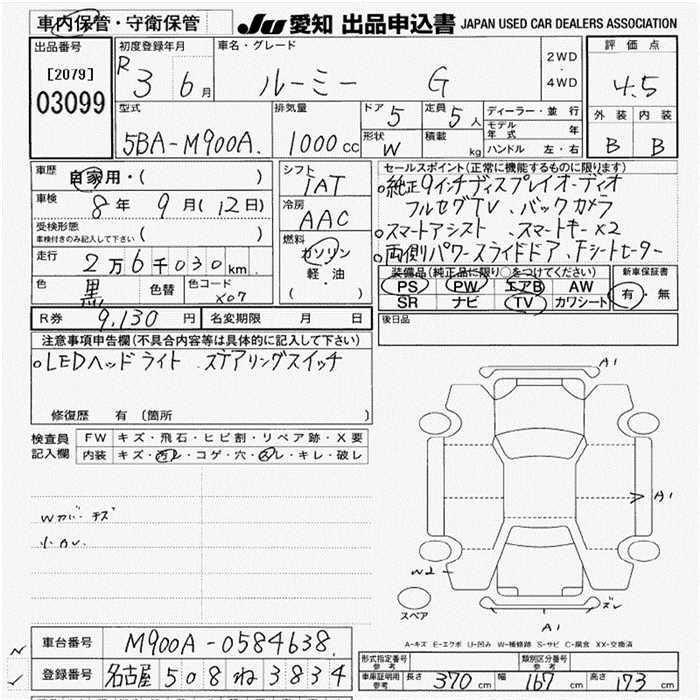 車内保管・守衛保管
JU 愛知 出品申込書 JAPAN USED CAR DEALERS ASSOCIATION
出品番号
[2079]
03099
初度登録年月
R 3 6 月
車名・グレード
ルーミー G
2WD
・
4WD
評価点
4.5
外装 内装
B B
型式
5BA-M900A.
排気量
1000 cc
ドア 5
定員 5 人
形状 W
積載 kg
ディーラー・並行
モデル年式 年
ハンドル 左・右
車歴
自家用・( )
車検
8 年 9 月 (12 日)
受検形態
車検付きのみ記入して下さい ( )
走行
2 万 6 千 0 3 0 km
色
黒 色替
色コード
X07
シフト
IAT
冷房
AAC
燃料
ガソリン
軽・油
( )
セールスポイント(正常に機能するものに限ります)
○純正9インチディスプレイオーディオ
フルセグTV、バックカメラ
○スマートアシスト、スマートキーX2
○両側パワースライドドア、Fシートヒーター
装備品(純正品に限り○をつけてください)
PS PW エアB AW
SR ナビ TV カワシート
新車保証書
有・無
R券 9,130 円
名変期限 月 日
後日品
注意事項申告欄(不具合内容等は具体的に記入して下さい)
○LEDヘッドライト、ステアリングスイッチ
修復歴 有 (箇所 )
検査員
記入欄
FW キズ・飛石・ヒビ割・リペア跡・X要
内装 キズ・汚レ・コゲ・穴・スレ・キレ・破レ
Wカバーキズ
小カレ
A1
A1
W2
スペア
ズレ
A1
A-キズ E-エクボ U-凹み W-補修跡 S-サビ C-腐食 XX-交換済
車台番号 M900A-0584638.
登録番号 名古屋 508 ね 3834
形式指定番号
参考
類別区分番号
参考
車庫証明用
参考
長さ 370 cm 幅 167 cm 高さ 173 cm